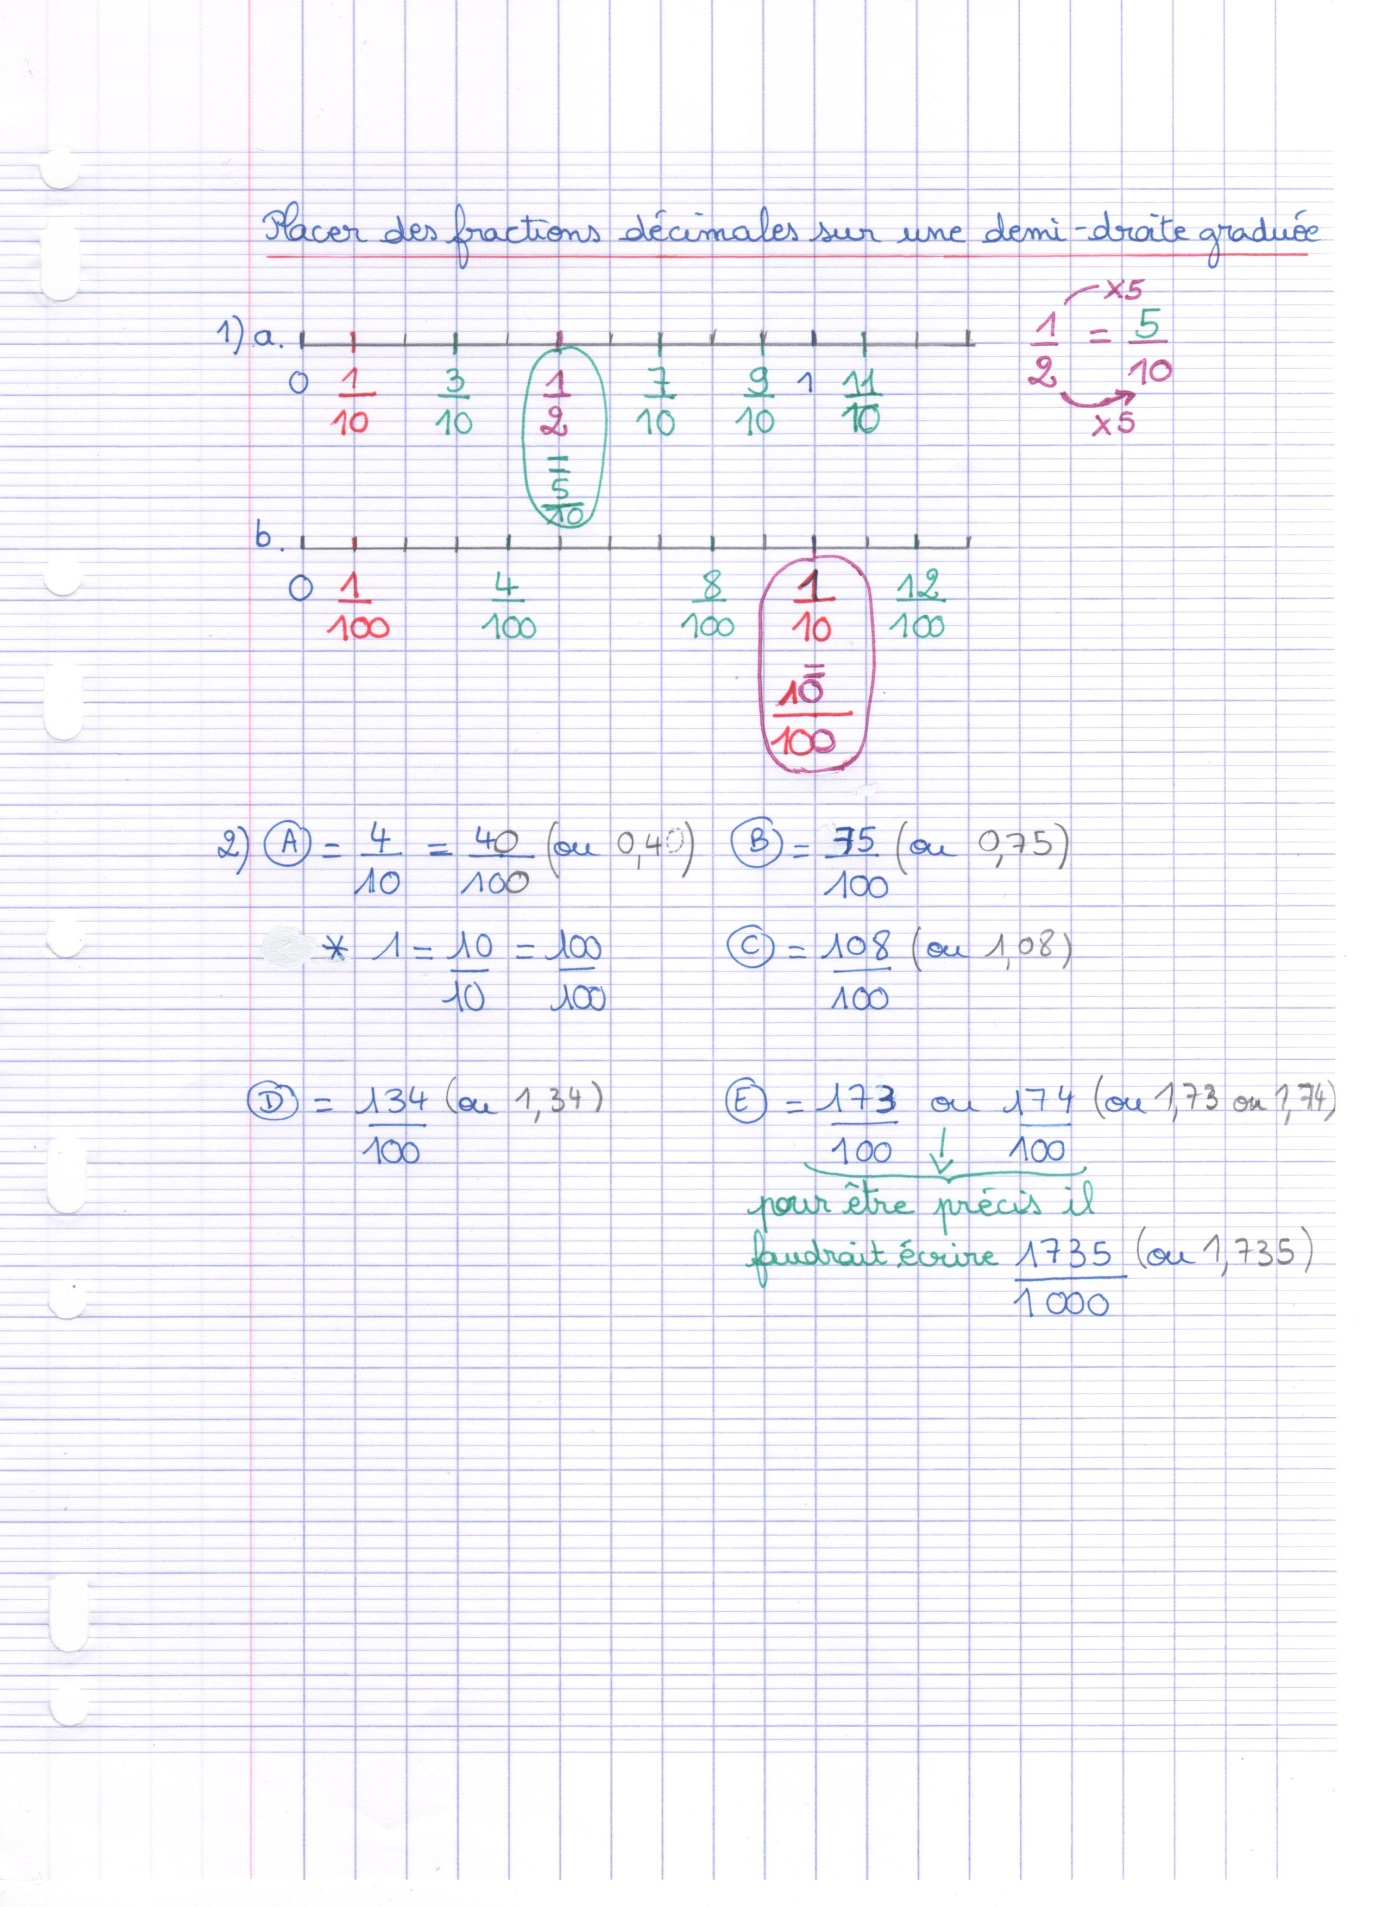 Placer des fractions décimales sur une demi-droite graduée
×5
1) a.
1/2 = 5/10
×5
0 1/10 3/10 1/2 7/10 9/10 1 11/10
=
5/10
b.
0 1/100 4/100 8/100 1/10 12/100
=
10/100
2) A = 4/10 = 40/100 (ou 0,40) B = 75/100 (ou 0,75)
* 1 = 10/10 = 100/100 C = 108/100 (ou 1,08)
D = 134/100 (ou 1,34) E = 173/100 ou 174/100 (ou 1,73 ou 1,74)
pour être précis il
faudrait écrire 1735/1 000 (ou 1,735)